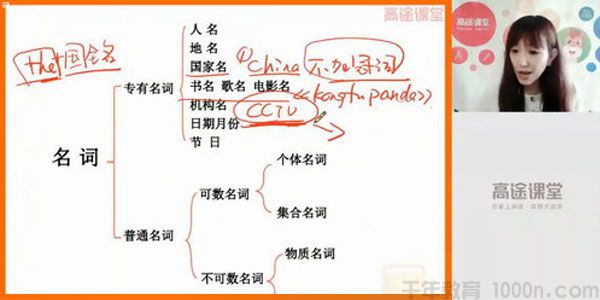 高途课堂
the+国全名
人名
地名
国家名 ①China 不加冠词
书名 歌名 电影名 《Kongfu panda》
专有名词
机构名 CCTV
日期月份
节日
名词
个体名词
可数名词
集合名词
普通名词
物质名词
不可数名词
高途课堂
高途课堂
千年教育 1000n.com